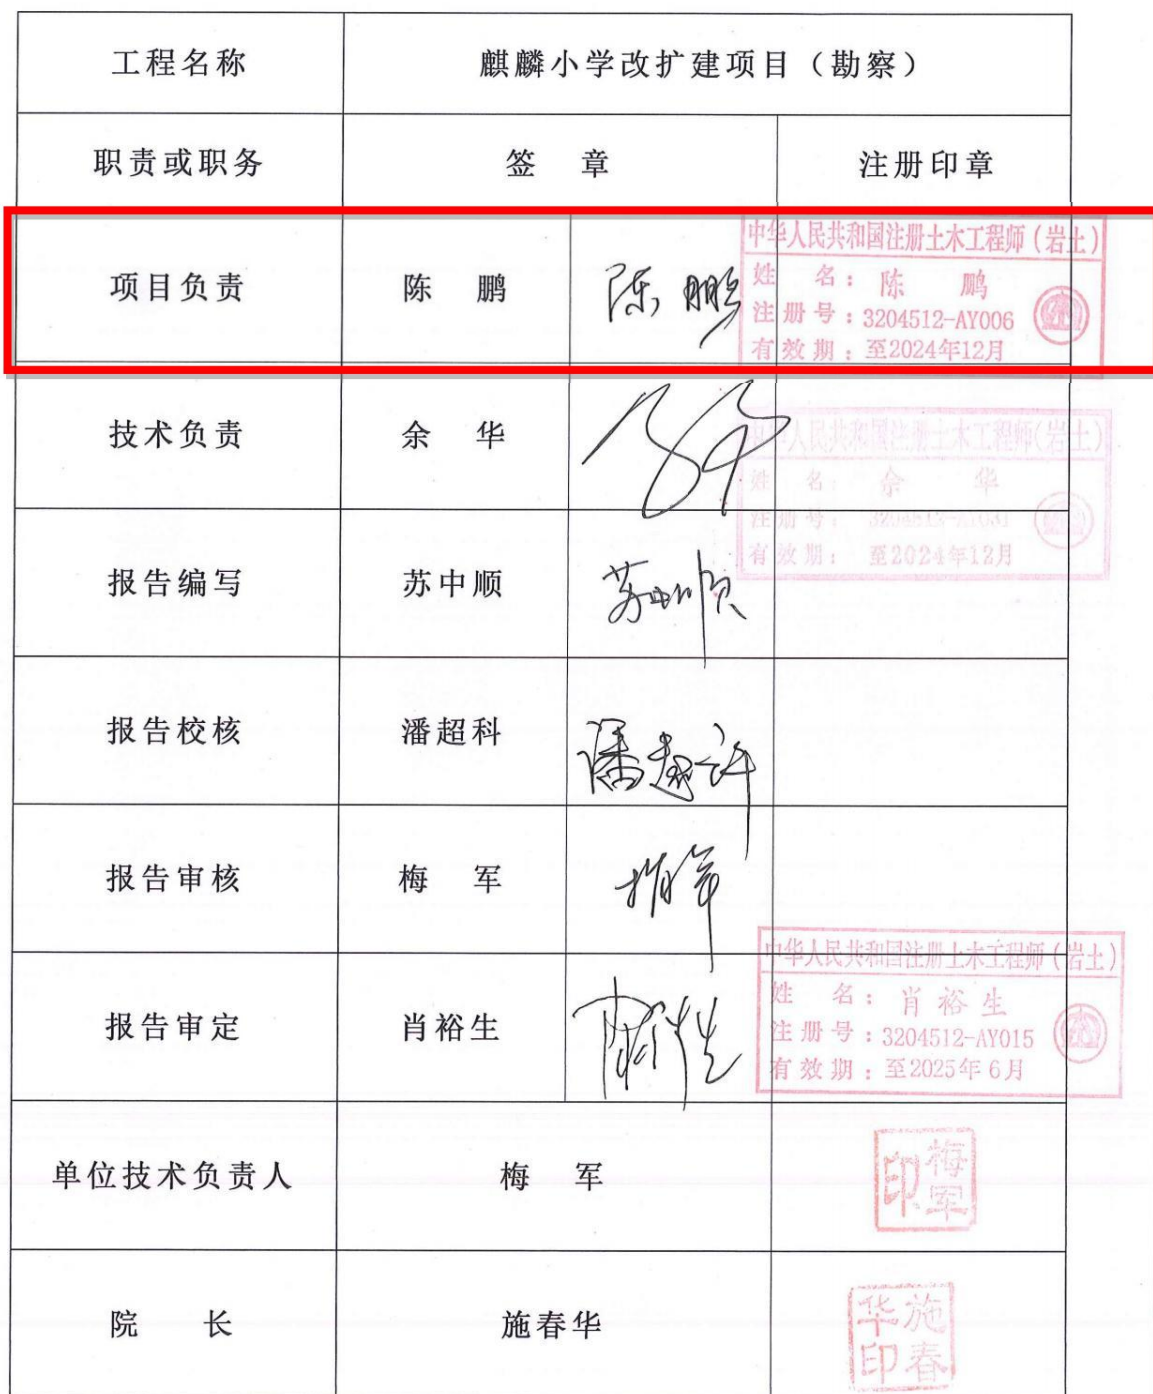 工程名称 麒麟小学改扩建项目（勘察）
职责或职务 签 章 注册印章
项目负责 陈 鹏 陈鹏
中华人民共和国注册土木工程师（岩土）
姓 名：陈 鹏
注册号：3204512-AY006
有效期：至2024年12月
技术负责 余 华
中华人民共和国注册土木工程师（岩土）
姓 名：余 华
注册号：3204512-AY031
有效期：至2024年12月
报告编写 苏中顺 苏中顺
报告校核 潘超科
报告审核 梅 军 梅军
报告审定 肖裕生
中华人民共和国注册土木工程师（岩土）
姓 名：肖裕生
注册号：3204512-AY015
有效期：至2025年6月
单位技术负责人 梅 军
梅军印
院 长 施春华
施春华印